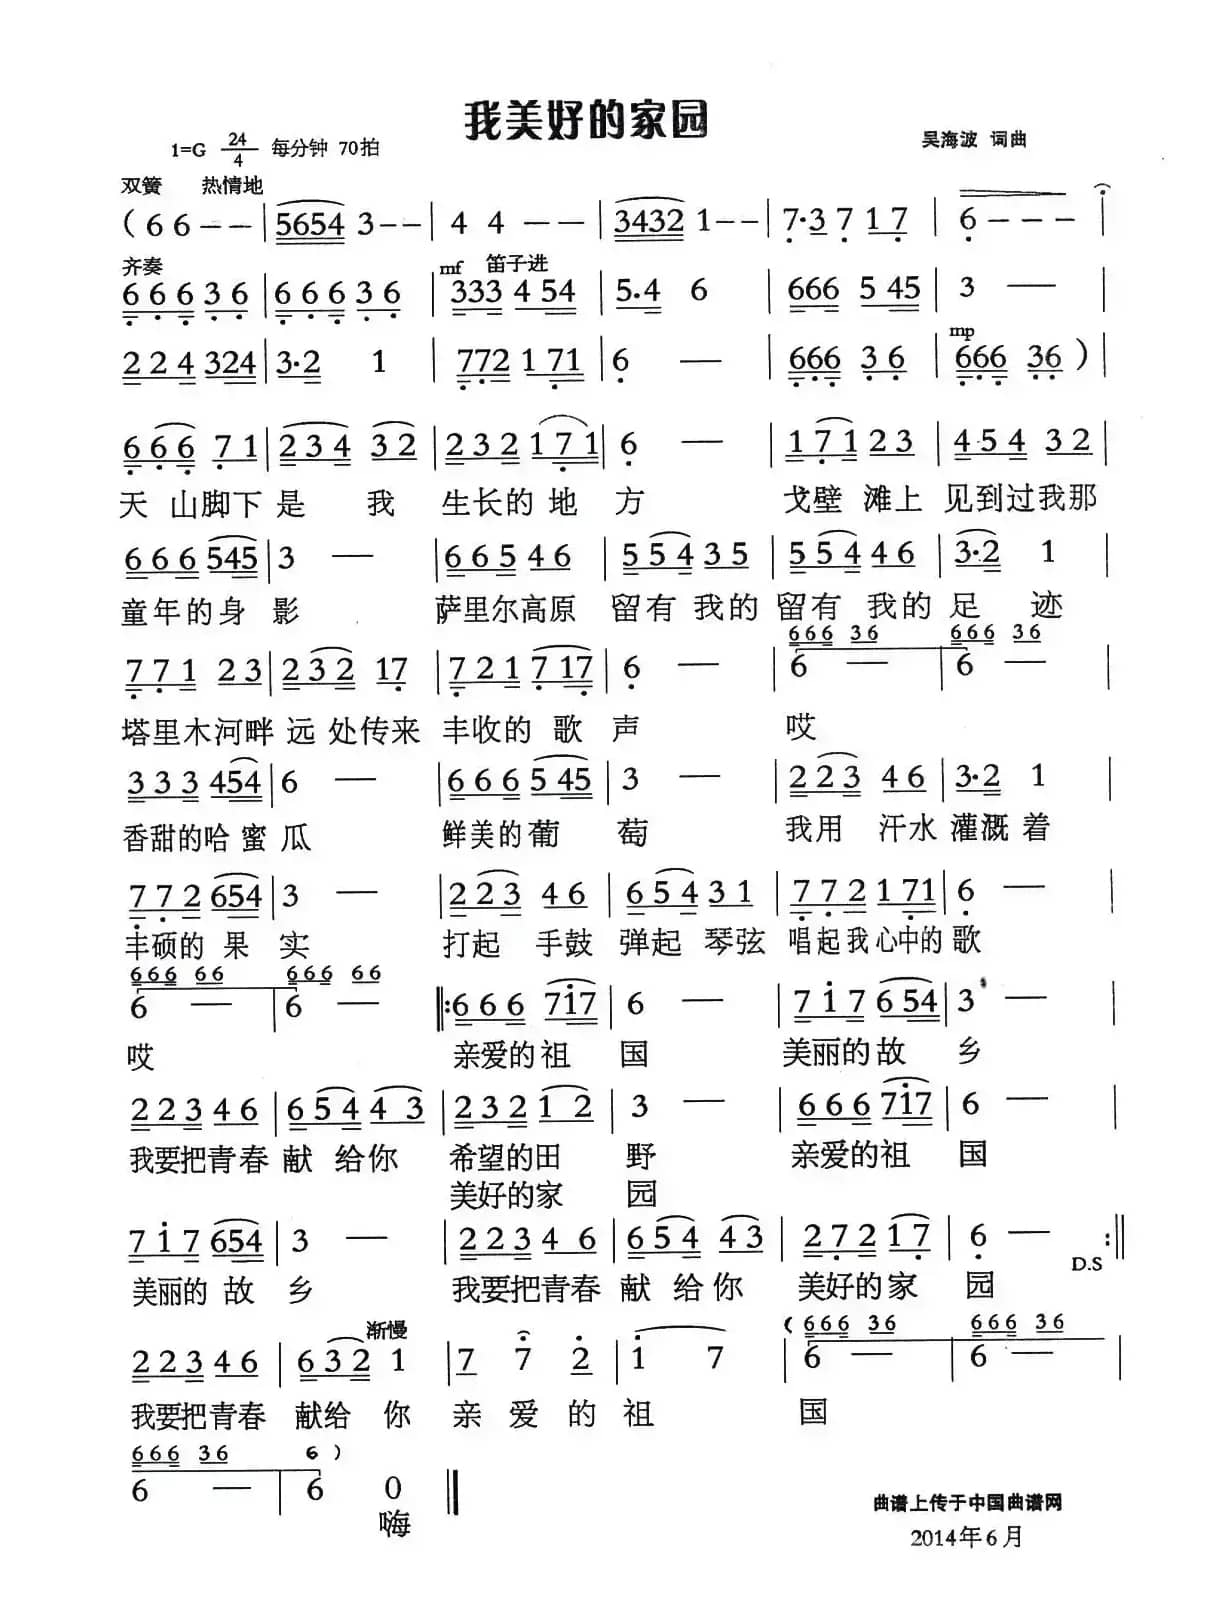 我美好的家园
1=G 24/4 每分钟 70拍
吴海波 词曲
双簧 热情地
( 6 6 - - | 5654 3 - - | 4 4 - - | 3432 1 - - | 7·3 7 1 7 | 6 - - - |
齐奏 mf 笛子进
6 6 6 3 6 | 6 6 6 3 6 | 333 4 54 | 5.4 6 | 666 5 45 | 3 — |
mp
2 2 4 324 | 3·2 1 | 772 1 71 | 6 — | 666 3 6 | 666 36 ) |
6 6 6 7 1 | 2 3 4 3 2 | 2 3 2 1 7 1 | 6 — | 1 7 1 2 3 | 4 5 4 3 2 |
天 山脚下 是 我 生长的 地 方 戈壁 滩上 见到过我那
6 6 6 545 | 3 — | 6 6 5 4 6 | 5 5 4 3 5 | 5 5 4 4 6 | 3·2 1 |
童年的身 影 萨里尔高原 留有 我的 留有 我的 足 迹
666 36 666 36
7 7 1 2 3 | 2 3 2 17 | 7 2 1 7 17 | 6 — | 6 — | 6 — |
塔里木河畔 远 处传来 丰收的 歌 声 哎
3 3 3 454 | 6 — | 6 6 6 5 45 | 3 — | 2 2 3 4 6 | 3·2 1 |
香甜的哈 蜜 瓜 鲜美的葡 萄 我用 汗水 灌溉 着
7 7 2 654 | 3 — | 2 2 3 4 6 | 6 5 4 3 1 | 7 7 2 1 71 | 6 — |
丰硕的 果 实 打起 手鼓 弹起 琴弦 唱起我心中的 歌
666 66 666 66
6 — | 6 — ‖: 6 6 6 717 | 6 — | 7 1 7 654 | 3 — |
哎 亲爱的祖 国 美丽的故 乡
2 2 3 4 6 | 6 5 4 4 3 | 2 3 2 1 2 | 3 — | 6 6 6 717 | 6 — |
我要把青春 献 给你 希望的田 野 亲爱的祖 国
美好的家 园
7 1 7 654 | 3 — | 2 2 3 4 6 | 6 5 4 4 3 | 2 7 2 1 7 | 6 — :‖
D.S
美丽的 故 乡 我要把青春 献 给 你 美好的家 园
渐慢 ( 666 36 666 36
2 2 3 4 6 | 6 3 2 1 | 7 7 2 | 1 7 | 6 — | 6 — |
我要把青春 献给 你 亲 爱 的 祖 国
666 36 6 )
6 — | 6 0 ‖
嗨
曲谱上传于中国曲谱网
2014年6月